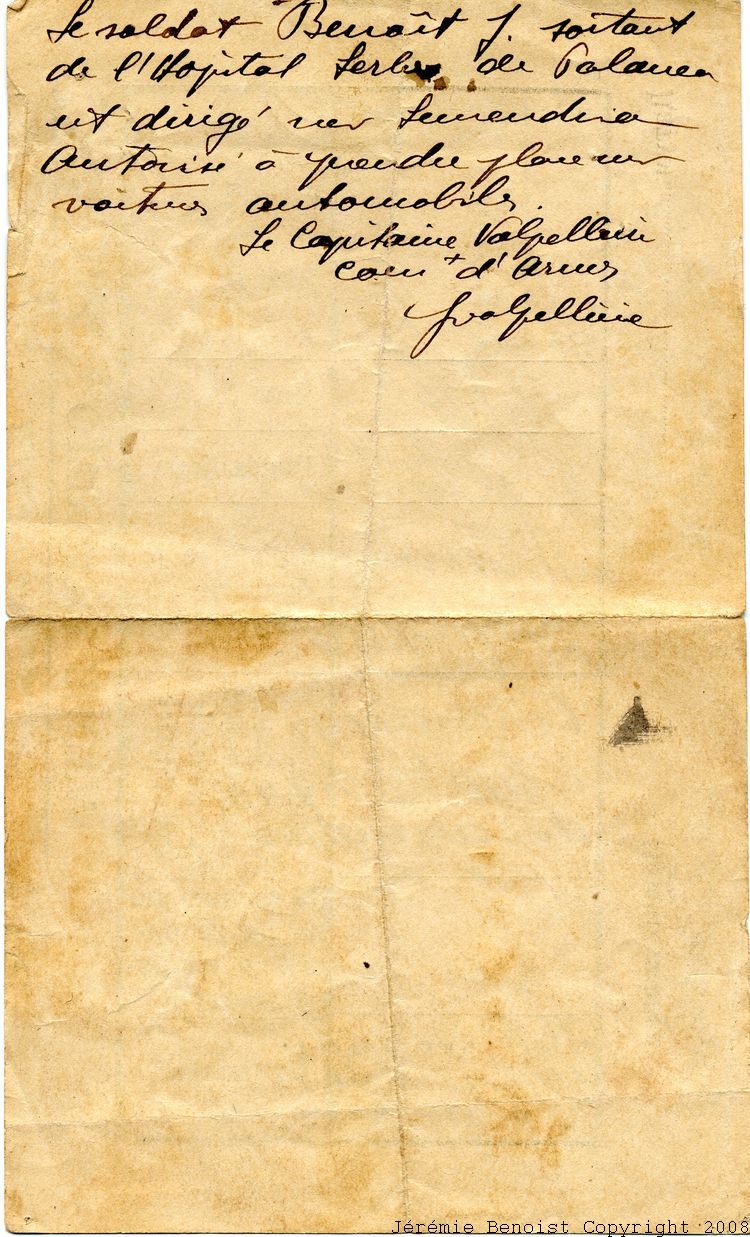 Le soldat Benoît J. sortant
de l'Hopital Serbe de Palanca
est dirigé sur Semendria
Autorisé à prendre place sur
voitures automobiles.
Le Capitaine Valpellière
Com t d'Armes
JValpellière
Jérémie Benoist Copyright 2008